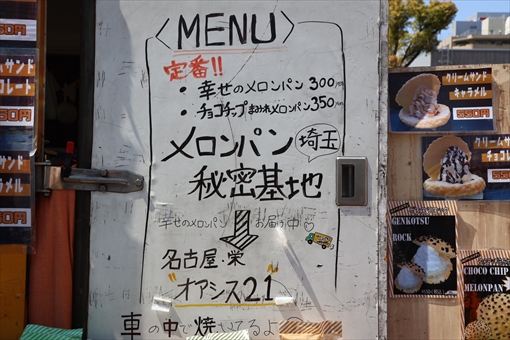 MENU
定番!!
・幸せのメロンパン 300円
・チョコチップまみれメロンパン 350円
メロンパン
埼玉
秘密基地
幸せのメロンパン お届け中
名古屋・栄
"オアシス21"
車の中で焼いてるよ
クリームサンド
キャラメル
550円
クリームサンド
チョコ
GENKOTSU
ROCK
CHOCO CHIP
MELONPAN
サンド
コレート
サンド
ラメル